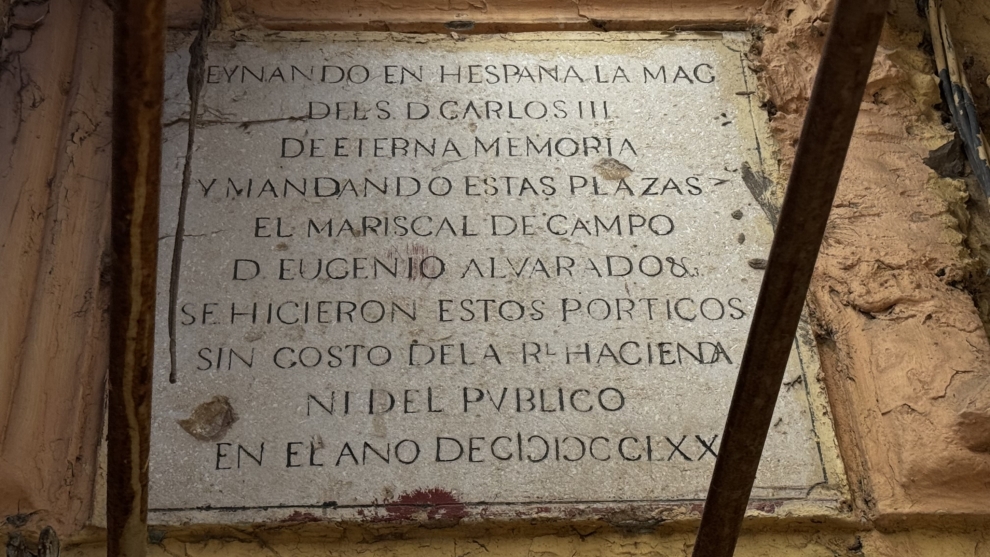 EYNANDO EN HESPANA LA MAG
DEL S. D CARLOS III.
DE ETERNA MEMORIA
Y MANDANDO ESTAS PLAZAS
EL MARISCAL DE CAMPO
D. EUGENIO ALVARADO &.
SE HICIERON ESTOS PORTICOS
SIN COSTO DE LA RL HACIENDA
NI DEL PVBLICO
EN EL ANO DE CIↃIↃCCLXX